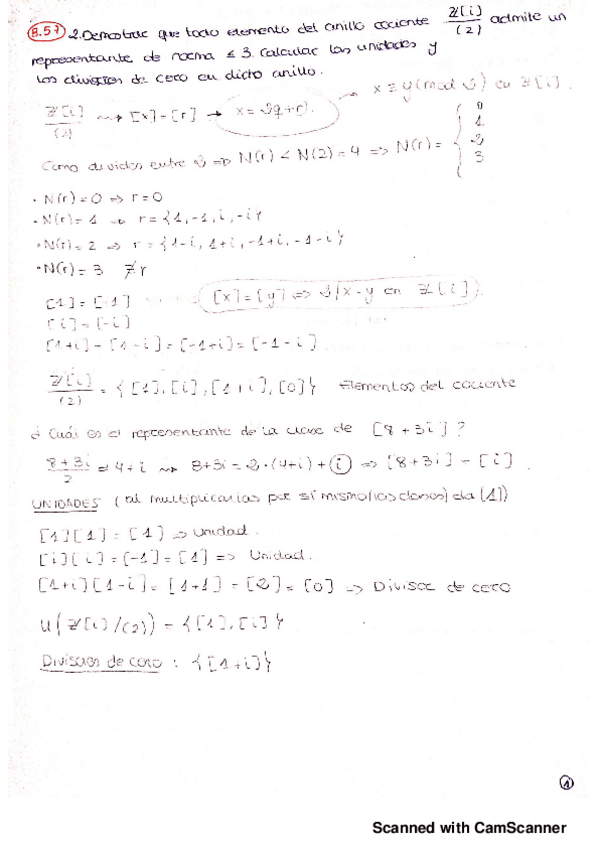 8.57 2. Demostrar que todo elemento del anillo cociente ℤ[i]/(2) admite un
representante de norma ≤ 3. Calcular las unidades y
los divisores de cero en dicho anillo.
ℤ[i]/(2) ⇝ [x] = [r] → x = 2q + r. → x ≡ y (mod 2) en ℤ[i].
Como dividos entre 2 ⇒ N(r) < N(2) = 4 ⇒ N(r) = { 0 1 2 3
· N(r) = 0 ⇒ r = 0
· N(r) = 1 ⇒ r = {1, -1, i, -i}
· N(r) = 2 ⇒ r = {1-i, 1+i, -1+i, -1-i}
· N(r) = 3 ∄ r
[1] = [-1] [x] = [y] ⇔ 2/x-y en ℤ[i].
[i] = [-i]
[1+i] = [1-i] = [-1+i] = [-1-i]
ℤ[i]/(2) = {[1], [i], [1+i], [0]} Elementos del cociente
¿Cuál es el representante de la clase de [8+3i]?
8+3i/2 = 4+i ⇝ 8+3i = 2·(4+i) + i ⇒ [8+3i] = [i].
UNIDADES (al multiplicarlas por sí mismo (las clases) da [1])
[1][1] = [1] ⇒ Unidad.
[i][i] = [-1] = [1] ⇒ Unidad.
[1+i][1-i] = [1+1] = [2] = [0] ⇒ Divisor de cero
U(ℤ[i]/(2)) = {[1], [i]}
Divisores de cero : {[1+i]}
1
Scanned with CamScanner